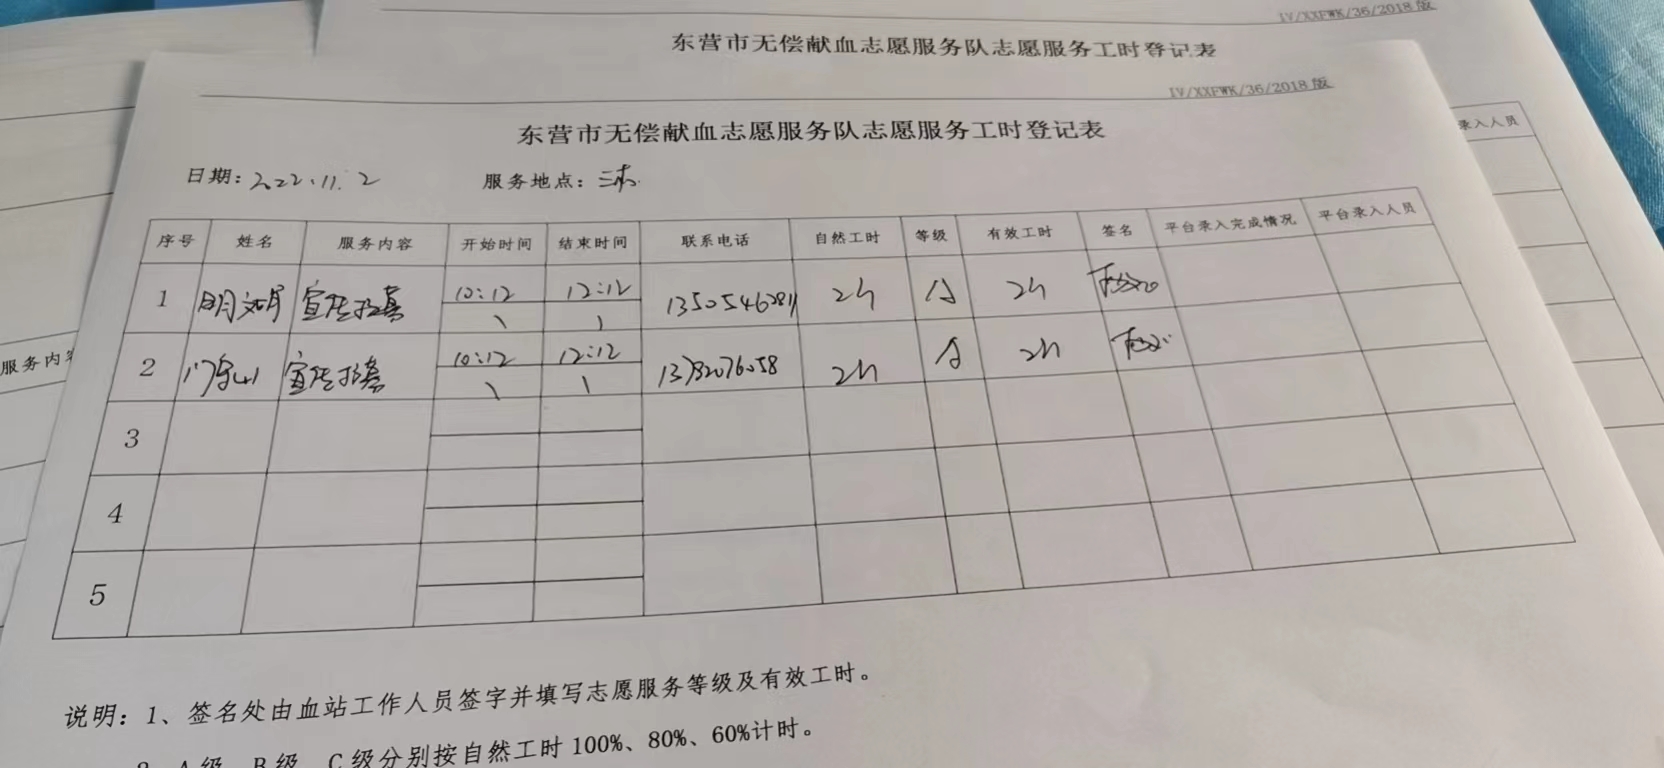 IV/XXFWK/36/2018版
东营市无偿献血志愿服务队志愿服务工时登记表
IV/XXFWK/36/2018版
东营市无偿献血志愿服务队志愿服务工时登记表
录入人员
日期：2022.11.2 服务地点：
序号 姓名 服务内容 开始时间 结束时间 联系电话 自然工时 等级 有效工时 签名 平台录入完成情况 平台录入人员
1 宣传招募 10:12 12:12 2h A 2h
服务内容
2 宣传招募 10:12 12:12 2h A 2h
3
4
5
说明：1、签名处由血站工作人员签字并填写志愿服务等级及有效工时。
2、A级、B级、C级分别按自然工时100%、80%、60%计时。